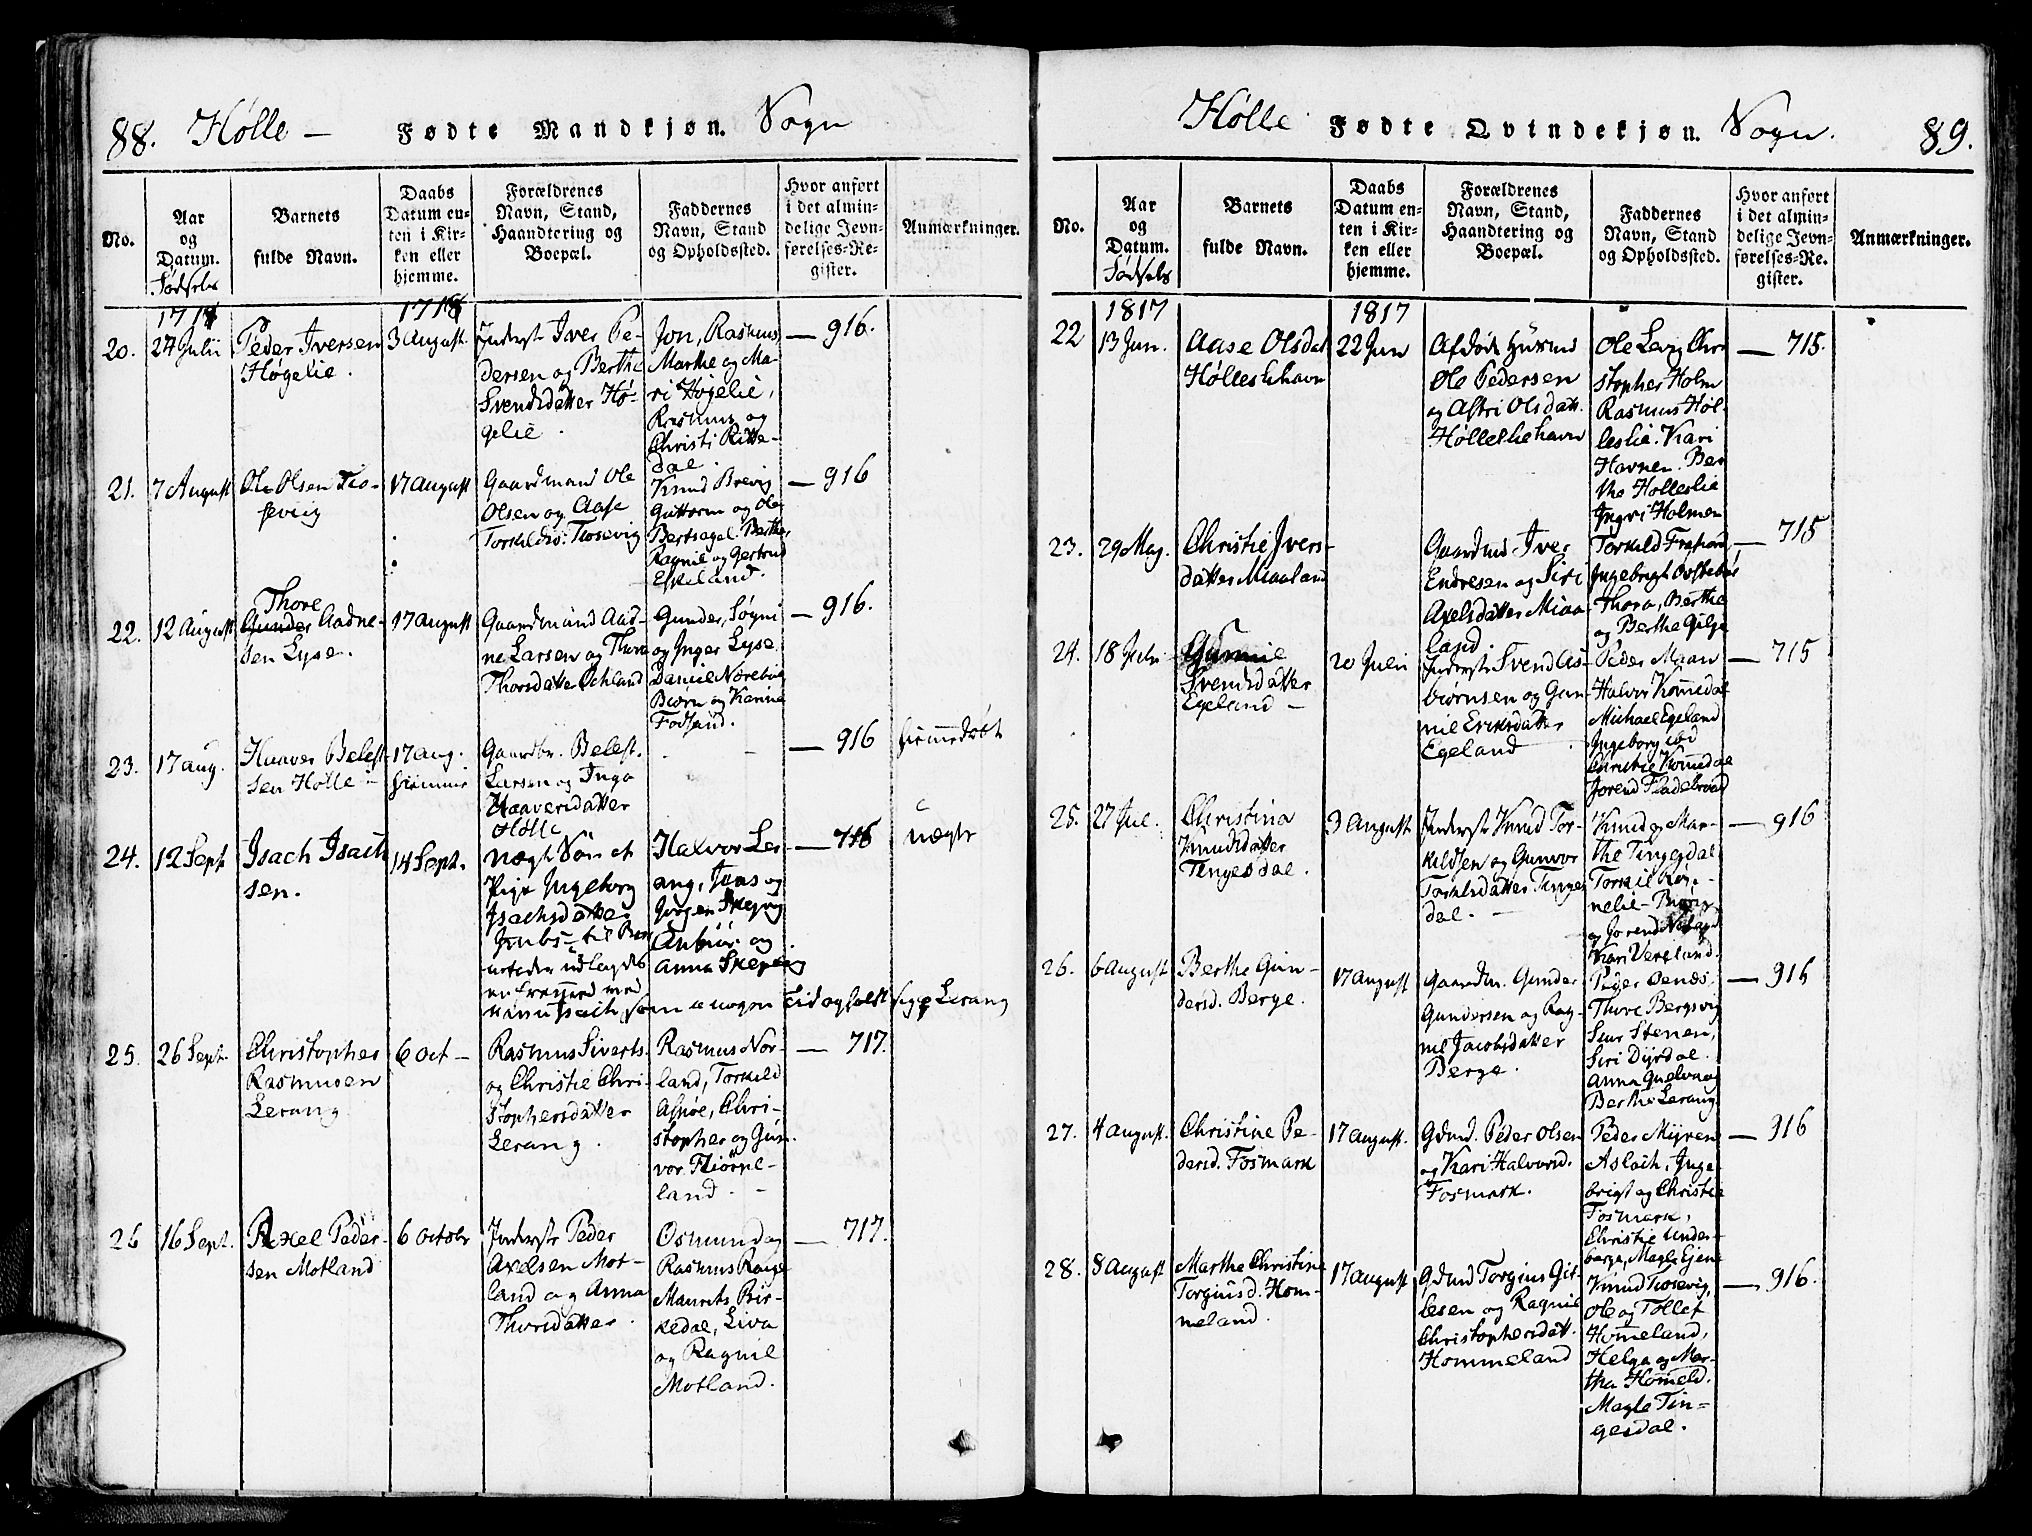 88. Hølle — Fødte Mandkjøn. Sogn
No.
Aar
og
Datum.
Fødsels
Barnets
fulde Navn.
Daabs
Datum en-
ten i Kir-
ken eller
hjemme.
Forældrenes
Navn, Stand,
Haandtering og
Boepæl.
Faddernes
Navn, Stand
og Opholdssted.
Hvor anført
i det almin-
delige Jevn-
førelses-Re-
gister.
Anmærkninger.
20.
27 Julii
Peder Iversen
Høgelie.
3 August
Inderst Iver Pe-
dersen og Berthe
Svendsdatter Hø-
gelie.
Jon, Rasmus,
Marthe og Ma-
ri Høgelie,
Rasmus og
Christi Ritte-
dal.
— 916.
21.
7 August
Ole Olsen Tio-
sevig
17 August
Gaardmand Ole
Olsen og Aase
Torkildsd: Tiosevig
Knud Brevig
Guttorm og Ole
Bertsagel. Berthe,
Ragnil og Gertrud
Eskeland.
— 916
22.
12 August
Thore
Gunder Aadne-
sen Lyse.
17 August
Gaardmand Aad-
ne Larsen og Thore
Thorsdatter Ochland
Gunder, Søgni
og Inger Lyse
Daniel Nørebøe
Biørn og Karine
Fodland.
— 916.
23.
17 aug.
Haaver Belest-
sen Hølle
17 aug.
hiemme
Gaardbr. Belest
Larsen og Inga
Haaversdatter
Hølle
— 916
hiemmedøbt
24.
12 Sept
Isach Isach-
sen.
14 Sept.
uægt Søn af
Pige Ingeborg
Isachsdatter
til Barnefader udlagdes
Halvor Ler-
ang, Jens og
Jørgen Skeprig
Anbiør og
Anna Skeprig
— 716
uægte
som a nogen Tid og holdt sig p Lerang
25.
26 Sept.
Christopher
Rasmusen
Lerang
6 Oct —
Rasmus Siverts.
og Christie Chri-
stophersdatter
Lerang.
Rasmus Nor-
land, Torkild
Aspøe, Chri-
stopher og Gun-
vor Fiørpe-
land. —
— 717.
26
16 Sept.
Axel Peder-
sen Motland
6 Octobr
Inderst Peder
Axelsen Mot-
land og Anna
Thorsdatter.
Osmund og
Rasmus Rage
Maurits Bir-
kedal, Liva
og Ragnil
Motland.
— 717.
Hølle Fødte Qvindekjøn. Sogn. 89.
No.
Aar
og
Datum.
Fødsels
Barnets
fulde Navn.
Daabs
Datum en-
ten i Kir-
ken eller
hjemme.
Forældrenes
Navn, Stand,
Haandtering og
Boepæl.
Faddernes
Navn, Stand
og Opholdssted.
Hvor anført
i det almin-
delige Jevn-
førelses-Re-
gister.
Anmærkninger.
1817
1817
22
13 Jun.
Aase Olsdat
Hølleslihavn
22 Jun
Afdøde Husmd
Ole Pedersen
og Astri Olsdatt.
Hølleslihavn
Ole Levig Chri
stopher Holm
Rasmus Høl-
leslie. Kari
Havnen. Ber
the Holleslie
Ingri Holmen
— 715.
23.
29 May.
Christie Ivers-
datter Miaaland
Gaardmd Iver
Endresen og Siri
Axelsdatter Miaa
land.
Torkild Frafiord,
Ingebrigt Øvstebøe
Thora, Berthe
og Berthe Gilje
— 715
24.
18 Juli
Gunnil
Svendsdatter
Egeland —
20 Juli
Inderst Svend As-
biørnsen og Gun-
nil Eriksdatter
Egeland
Peder Maan
Halvor Komedal
Michael Egeland
Ingeborg ibd
Christie Komedal
Jorend Fladebrød
— 715
25.
27 Jul.
Christina
Knudsdatter
Tingesdal.
3 August
Inderst Knud Tor-
kildsen og Gunvor
Torkelsdatter Tinges
dal. —
Knud og Mar-
the Tingesdal
Torkil Røs-
nelie
og Jorend
Kari Vereland.
— 916
26.
6 August
Berthe Gun-
dersd. Berge.
17 August
Gaardm. Gunder
Gundersen og Rag-
nil Jacobsdatter
Berge.
Thore Bergsvig
Siur Stenen,
Siri Dyrdal.
Anna Quelvu og
Berthe Lerang
— 916
27.
4 august.
Christine Pe-
dersd. Fosmark
17 August.
Gdmd. Peder Olsen
og Kari Halvorsd.
Fosmark.
Peder Myren
Aslach, Inge-
brigt og Christie
Fosmark,
Christie Under-
berge, Magle Ejene
— 916
28.
8 August
Marthe Christine
Torgiusd. Hom-
meland.
17 August
Gdmd Torgius Git-
lesen og Ragnil
Christophersdatt.
Hommeland
Knud Tiosevig,
Ole og Tollef
Homeland,
Helga og Mar-
tha Homeld.
Magle Tin-
gesdal.
— 916.